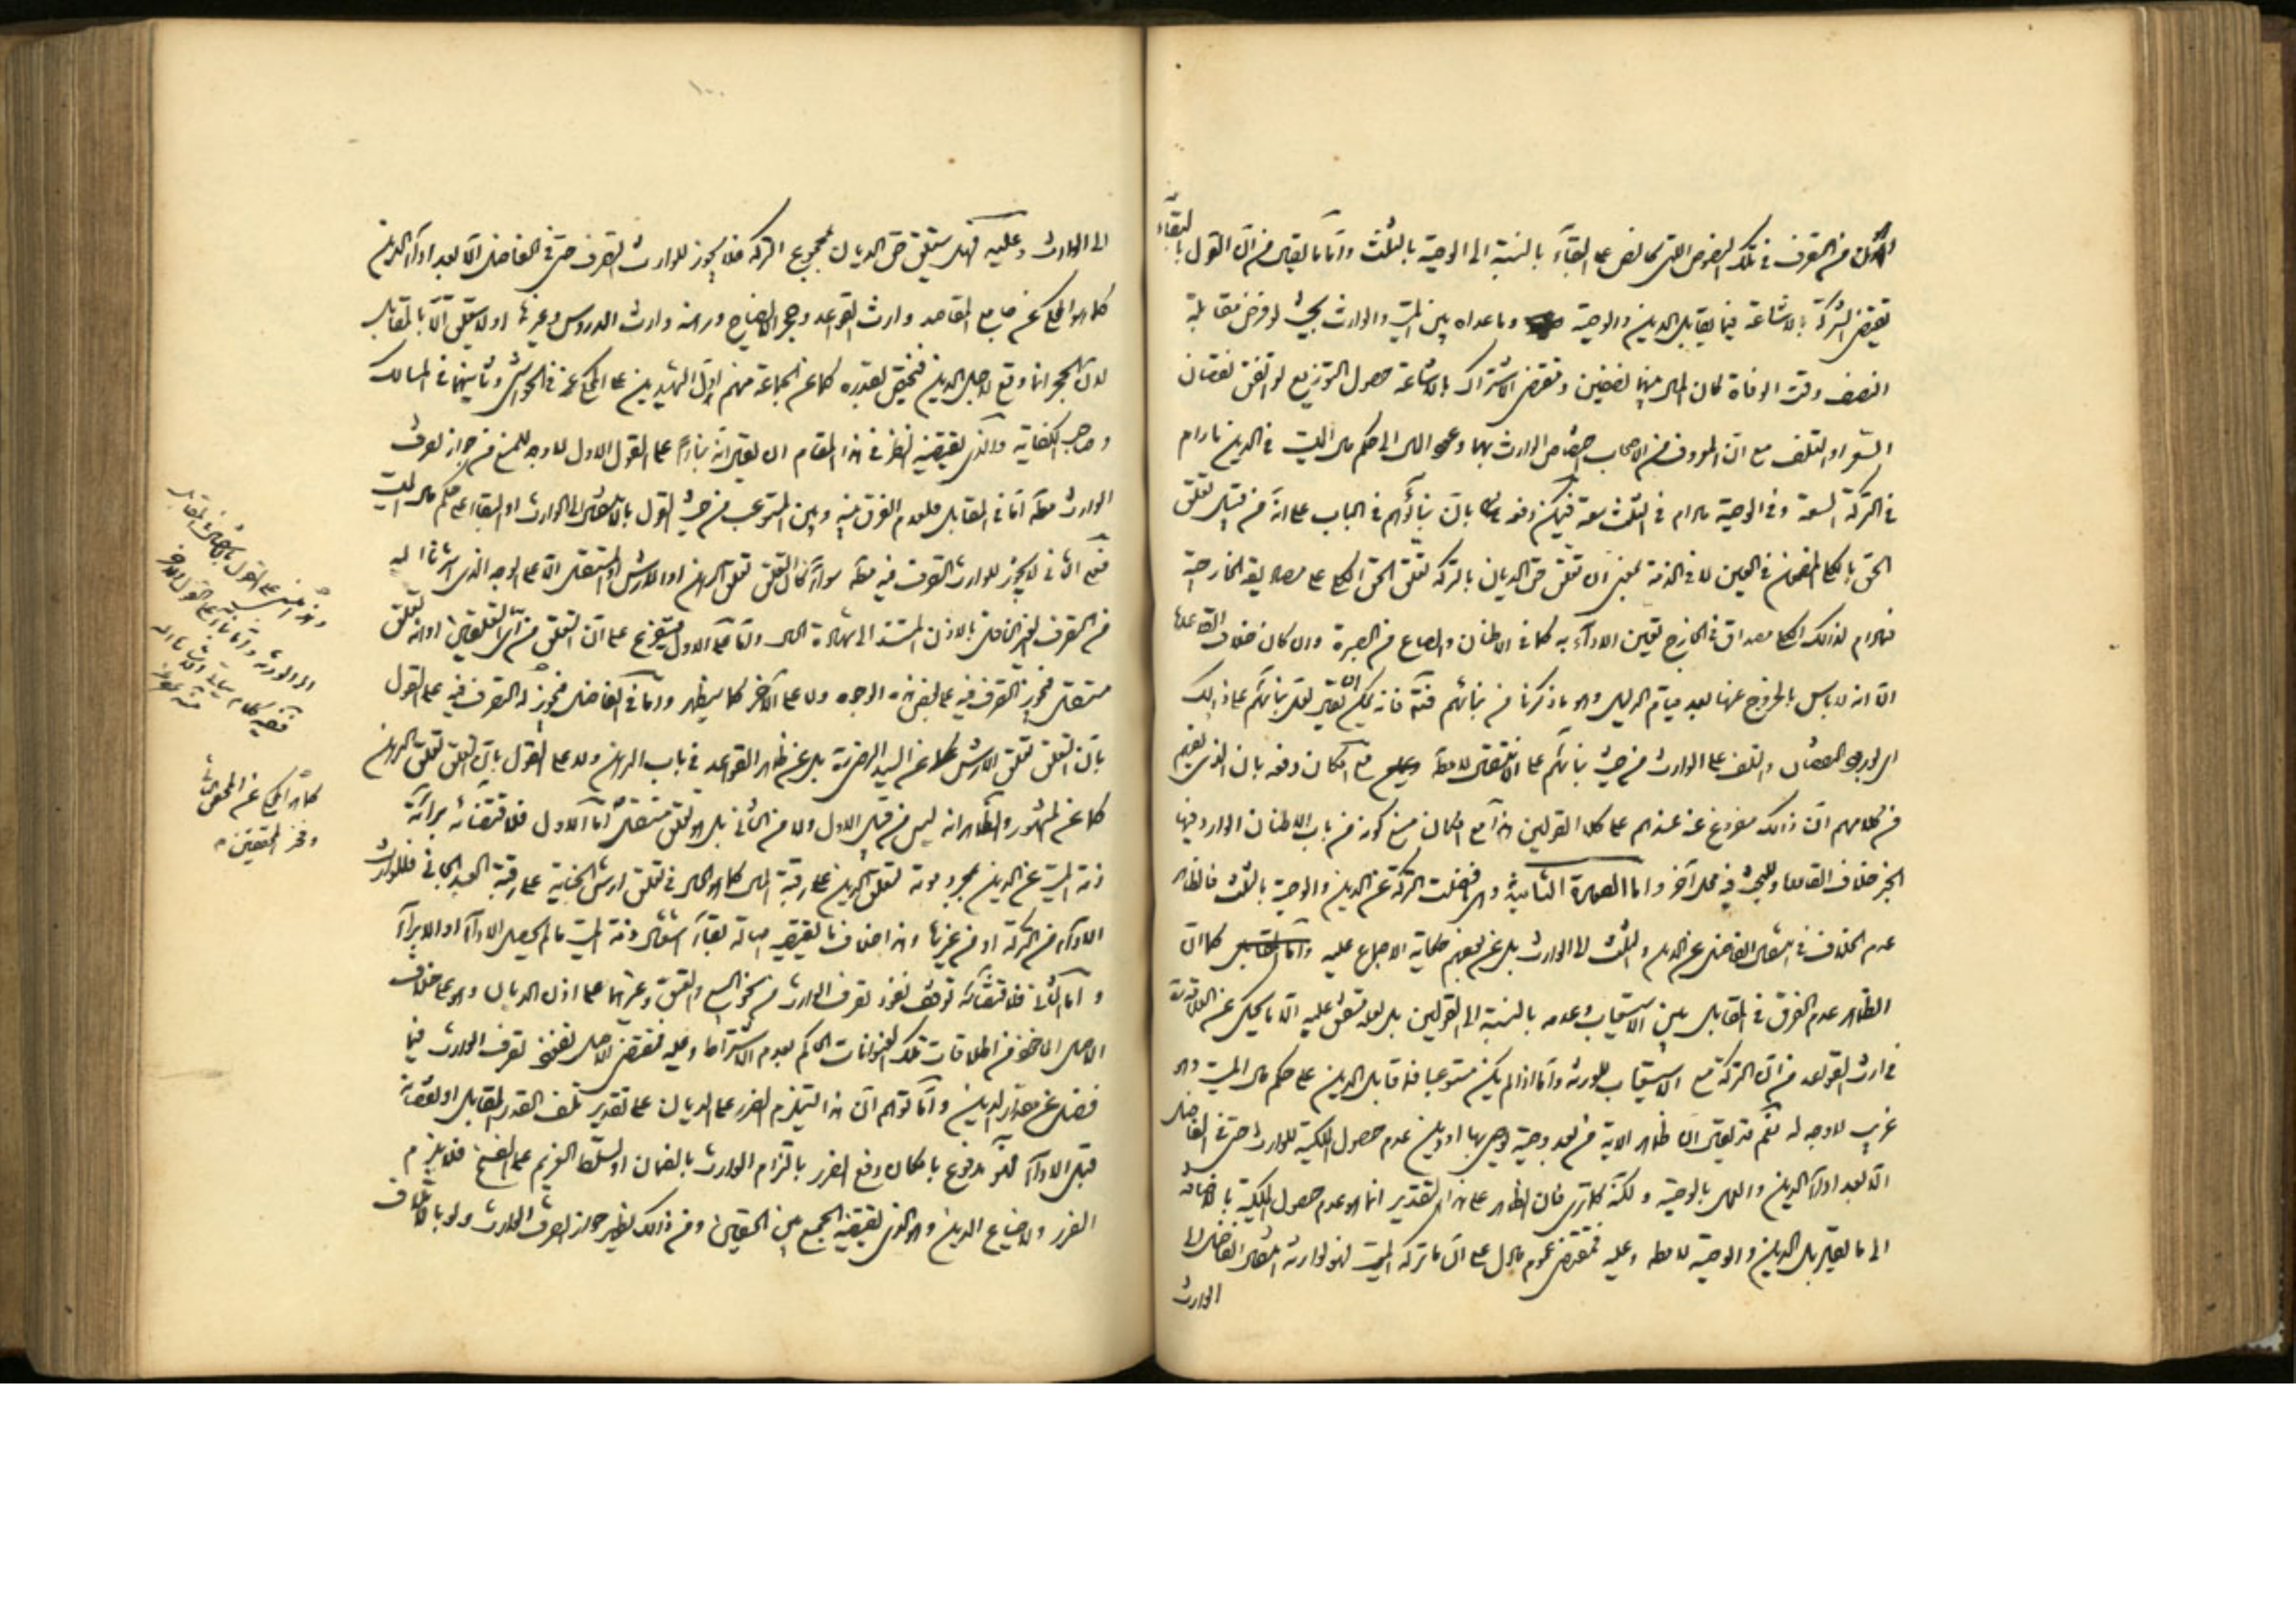 من التصرف في تلك النصوص التي كالنص على البقاء بالنسبة الى الوصية بالثلث واما ما يقال من ان القول بالبقاء
يقتضى الشركة بالاشاعة فيما يقابل الدين والوصية وما عداه بين الميت والوارث بحيث لو فرض مقابلة
النصف وقت الوفاة كان المال بينهما نصفين ومقتضى الاشتراك بالاشاعة حصول التوزيع لو اتفق نقصان
السعر او التلف مع ان المعروف من الاصحاب اختصاص الوارث بهما وعود المال الى حكم مال الميت في الدين مادام
في التركة السعة وفي الوصية مادام في الثلث سعة فيمكن دفعه بان بنائهم في الباب على انه من قبيل تعلق
الحق بالكلي المضمون في العين لا في الذمة بمعنى ان تعلق حق الديان بالتركة كتعلق الحق الكلي على مصاديقه الخارجية
فمادام لذلك الكلي مصداق في الخارج تعين الاداء به كما في الاطنان والصاع من الصبرة وان كان خلاف القاعدة
الا انه لا باس بالخروج عنها بعد قيام الدليل وهو ما ذكرنا من بنائهم فتم فانه يمكن ان يقال لعل بنائهم على ذلك
اى ورود النقصان والتلف على الوارث من حيث بنائهم على الانتقال لا مطلقا مع امكان دفعه بان الذى يفهم
من كلامهم ان ذلك مفروغ عنه عندهم على كلا القولين هذا مع امكان منع كونه من باب الاطنان الوارد فيها
الخبر خلاف القاعدة وللبحث فيه محل آخر واما الصورة الثانية وهى فضلت التركة عن الدين والوصية بالثلث فالظاهر
عدم الخلاف في انتقال الفاضل عن الدين والثلث الى الوارث بل عن بعضهم حكاية الاجماع عليه واما المقابل كما ان
الظاهر عدم الفرق في المقابل بين الاستيعاب وعدمه بالنسبة الى القولين بل لعله متفق عليه الا ما يحكى عن العلامة
في ارث القواعد من ان التركة مع الاستيعاب للورثة واما اذا لم يكن مستوعبا فما قابل الدين على حكم مال الميت وهو
غريب لا وجه له نعم قد يقال ان ظاهر الاية من بعد وصية يوصى بها او دين عدم حصول الملكية للوارث حتى في الفاضل
الا بعد اداء الدين والعمل بالوصية ولكنه كما ترى فان الظاهر على هذا التقدير انما هو عدم حصول الملكية بالاضافة
الى ما يقابل الدين والوصية لا مطلقا وعليه فمقتضى عموم ما دل على ان ما تركه الميت فهو لوارثه انتقال الفاضل الى
الوارث
١٠٠
الى الوارث وعليه فهل يتعلق حق الديان بمجموع التركة فلا يجوز للوارث التصرف حتى في الفاضل الا بعد اداء الدين
كما هو المحكى عن جامع المقاصد وارث القواعد وحجر الايضاح ورهنه وارث الدروس وغيرها او لا يتعلق الا بالمقابل
لان الحجر انما وقع لاجل الدين فيختص بقدره كما عن جماعة منهم اول الشهيدين على المحكى عنه في الحواشى وثانيهما في المسالك
وصاحب الكفاية والذى يقتضيه النظر في هذا المقام ان يقال انه بناء على القول الاول لا وجه للمنع من جواز تصرف
الوارث مطلقا اما في المقابل فلعدم الفرق فيه وبين المستوعب من حيث القول بالانتقال الى الوارث او البقاء على حكم مال الميت
فعلى الثانى لا يجوز للوارث التصرف فيه مطلقا سواء كان التعلق تعلق الرهن او الارش او مستقل الا على الوجه الذى اشرنا اليه
من التصرف الغير المنافى بالاذن المستند الى شهادة الحال واما على الاول فيتفرع على ان التعلق من اى التعلقين او انه تعلق
مستقل فيجوز التصرف فيه على بعض هذه الوجوه ولا على الآخر كما سيظهر واما في الفاضل فيجوز له التصرف فيه على القول
بان التعلق تعلق الارش كما عن السيد الرضى بل عن ظاهر القواعد في باب الرهن ولا على القول بان التعلق تعلق الرهن
كما عن المشهور والظاهر انه ليس من قبيل الاول ولا من الثانى بل هو تعلق مستقل اما الاول فلاقتضائه براءة
ذمة الميت عن الدين بمجرد موته وتعلق الدين على رقبة المال كما هو الحال في تعلق ارش الجناية على رقبة العبد الجانى فللوارث
الاداء من التركة او من غيرها وهذا خلاف ما يقتضيه اصالة بقاء اشتغال ذمة الميت ما لم يحصل الاداء او الابراء
واما الثانى فلاقتضائه توقف نفوذ تصرف الوارث من نحو البيع والعتق وغيرهما على اذن الديان وهو على خلاف
الاصل الماخوذ من اطلاقات تلك العنوانات الحاكم بعدم الاشتراط وعليه فمقتضى الاصل نفوذ تصرف الوارث فيما
فضل عن مقدار الدين واما توهم ان هذا يستلزم الضرر على الديان على تقدير تلف القدر المقابل او نقصانه
قبل الاداء فهو مدفوع بامكان دفع الضرر بالتزام الوارث بالضمان او تسلط الغريم على الفسخ فلا يلزم
الضرر ولا ضياع الدين وهو الذى يقتضيه الجمع بين الحقين ومن ذلك يظهر جواز تصرف الوارث ولو بالاتلاف
الى الورثة واما بناء على القول الاخر
كما هو المحكى عن المحقق الثانى
وفخر المحققين